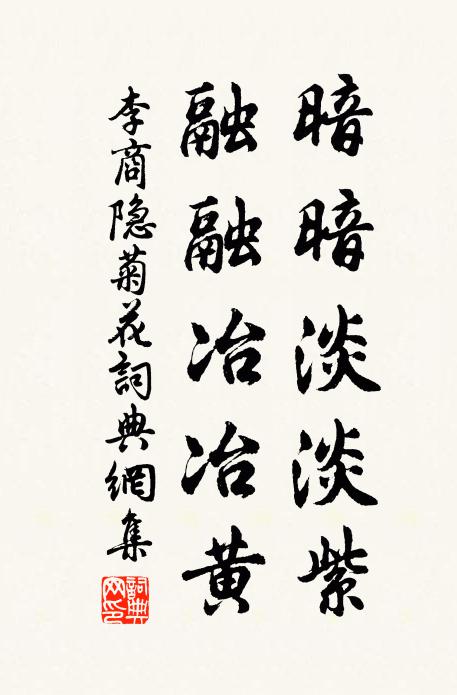 暗暗淡淡紫
融融冶冶黄
李商隐菊花詞典網集
詞典网印